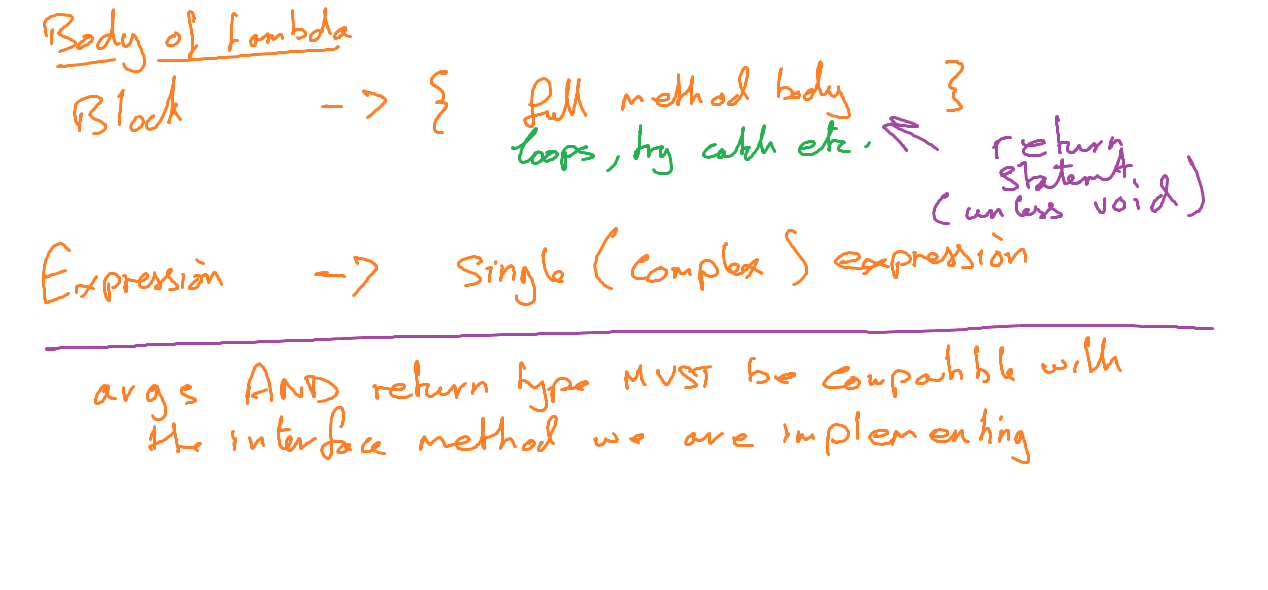 Body of Lambda
Block -> { full method body }
loops, try catch etc.
return
statemt
(unless void)
Expression -> single (complex) expression
args AND return type MUST be compatible with
the interface method we are implementing